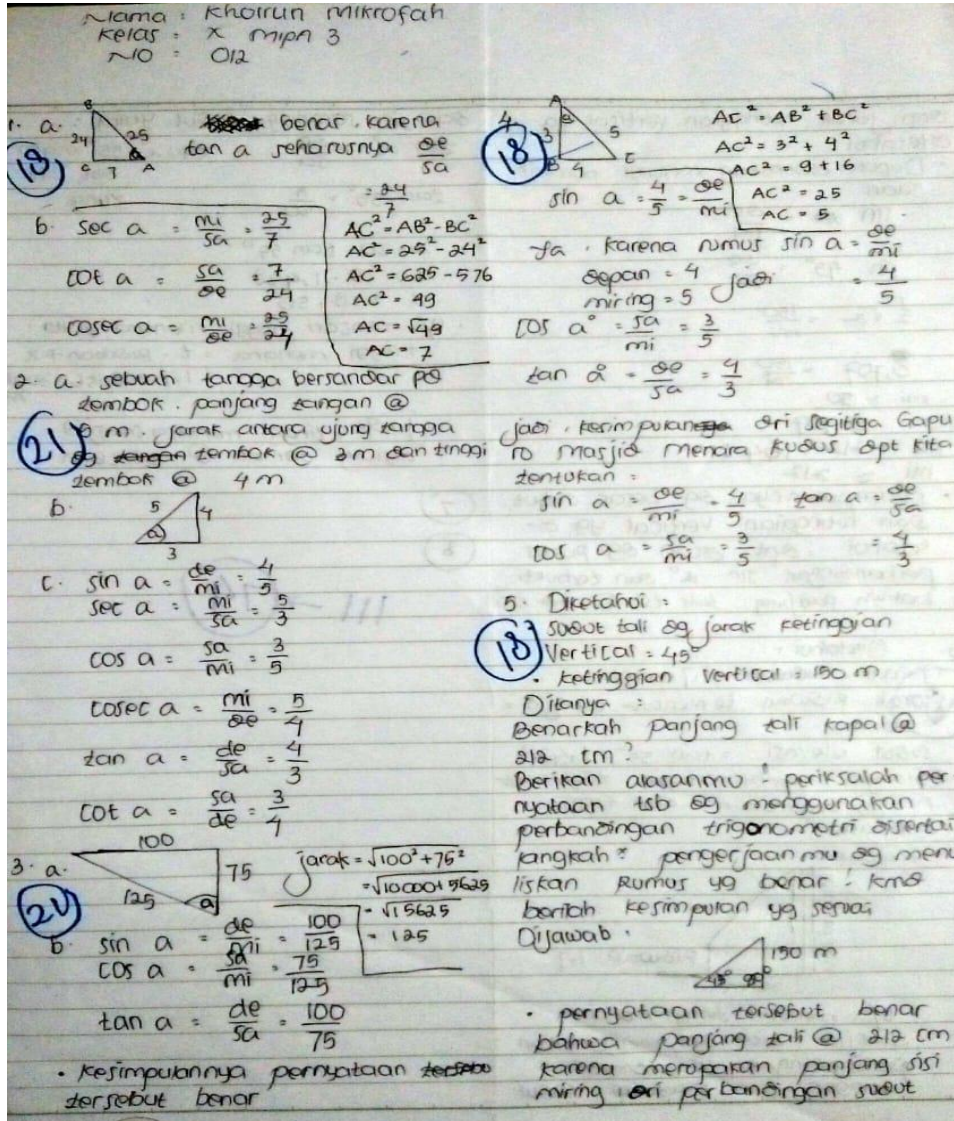 Nama : Khoirun Mikrofah
Kelas : X mipa 3
NO : 012
1. a.
B
24
25
C 7 A
a
benar. karena
tan a seharusnya de/sa
= 24/7
18
b. sec a = mi/sa = 25/7
cot a = sa/de = 7/24
cosec a = mi/de = 25/24
AC² = AB² - BC²
AC² = 25² - 24²
AC² = 625 - 576
AC² = 49
AC = √49
AC = 7
2. a. sebuah tangga bersandar pd
tembok. panjang tangan @
m. jarak antara ujung tangga
dg tembok @ 3m dan tinggi
tembok @ 4 m
21
b.
5 4
a
3
c. sin a = de/mi = 4/5
sec a = mi/sa = 5/3
cos a = sa/mi = 3/5
cosec a = mi/de = 5/4
tan a = de/sa = 4/3
cot a = sa/de = 3/4
3. a.
100
75
125 a
jarak = √100² + 75²
= √10000 + 5625
= √15625
= 125
b. sin a = de/mi = 100/125
cos a = sa/mi = 75/125
tan a = de/sa = 100/75
• kesimpulannya pernyataan
tersebut benar
4.
A
3 5
B 4 C
18
AC² = AB² + BC²
AC² = 3² + 4²
AC² = 9 + 16
AC² = 25
AC = 5
sin a = 4/5 = de/mi
Ya. karena rumus sin a = de/mi
depan = 4 jadi = 4/5
miring = 5
cos a° = sa/mi = 3/5
tan a° = de/sa = 4/3
jadi, kesimpulan dri segitiga Gapu
ro masjid menara kudus dpt kita
tentukan :
sin a = de/mi = 4/5 tan a = de/sa
cos a = sa/mi = 3/5 = 4/3
5. Diketahui :
• sudut tali dg jarak ketinggian
vertical = 45°
• ketinggian vertical = 150 m
18
Ditanya :
Benarkah panjang tali kapal @
212 cm ?
Berikan alasanmu ! periksalah per
nyataan tsb dg menggunakan
perbandingan trigonometri disertai
langkah² pengerjaan mu dg menu
liskan Rumus yg benar ! kmd
berilah kesimpulan yg sesuai
Dijawab :
150 m
45°
• pernyataan tersebut benar
bahwa panjang tali @ 212 cm
karena merupakan panjang sisi
miring dri perbandingan sudut